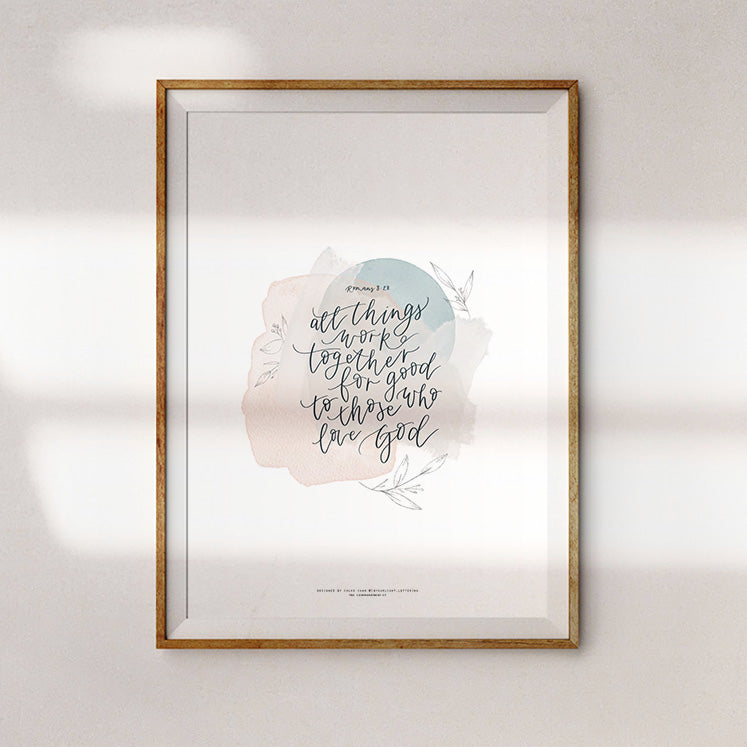 Romans 8:28
all things
work
together
for good
to those who
love God
DESIGNED BY